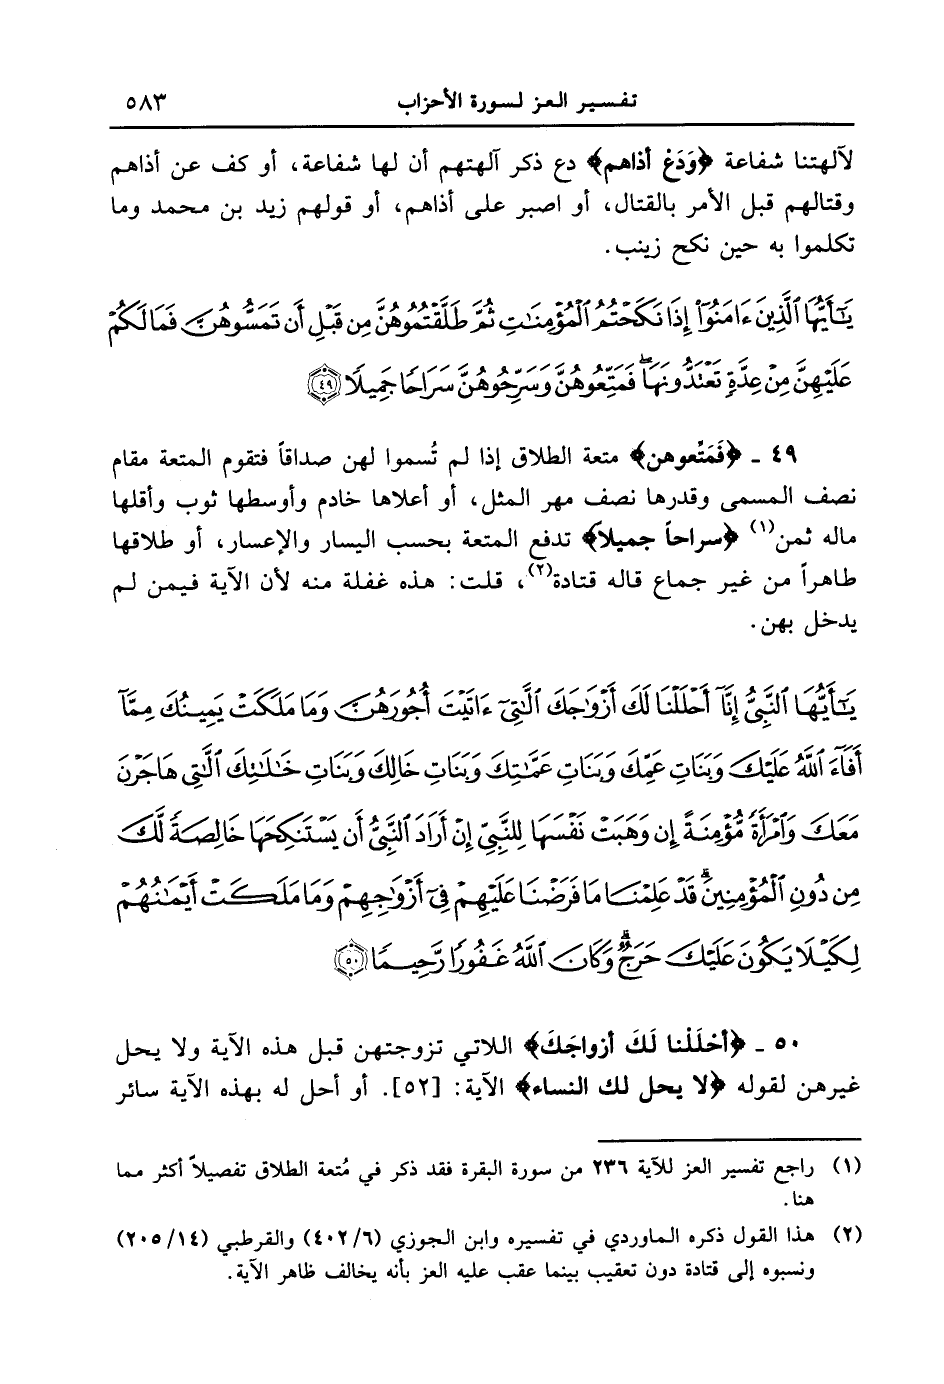 تفسير العز لسورة الأحزاب ٥٨٣
لآلهتنا شفاعة ﴿وَدَعْ أذاهم﴾ دع ذكر آلهتهم أن لها شفاعة، أو كف عن أذاهم
وقتالهم قبل الأمر بالقتال، أو اصبر على أذاهم، أو قولهم زيد بن محمد وما
تكلموا به حين نكح زينب.
يَٰٓأَيُّهَا ٱلَّذِينَ ءَامَنُوٓاْ إِذَا نَكَحْتُمُ ٱلْمُؤْمِنَٰتِ ثُمَّ طَلَّقْتُمُوهُنَّ مِن قَبْلِ أَن تَمَسُّوهُنَّ فَمَا لَكُمْ
عَلَيْهِنَّ مِنْ عِدَّةٍ تَعْتَدُّونَهَا ۖ فَمَتِّعُوهُنَّ وَسَرِّحُوهُنَّ سَرَاحًا جَمِيلًا ﴿٤٩﴾
٤٩ ـ ﴿فَمَتِّعوهن﴾ متعة الطلاق إذا لم تُسموا لهن صداقاً فتقوم المتعة مقام
نصف المسمى وقدرها نصف مهر المثل، أو أعلاها خادم وأوسطها ثوب وأقلها
ماله ثمن(١) ﴿سراحاً جميلاً﴾ تدفع المتعة بحسب اليسار والإعسار، أو طلاقها
طاهراً من غير جماع قاله قتادة(٢)، قلت: هذه غفلة منه لأن الآية فيمن لم
يدخل بهن.
يَٰٓأَيُّهَا ٱلنَّبِىُّ إِنَّآ أَحْلَلْنَا لَكَ أَزْوَٰجَكَ ٱلَّٰتِىٓ ءَاتَيْتَ أُجُورَهُنَّ وَمَا مَلَكَتْ يَمِينُكَ مِمَّآ
أَفَآءَ ٱللَّهُ عَلَيْكَ وَبَنَاتِ عَمِّكَ وَبَنَاتِ عَمَّٰتِكَ وَبَنَاتِ خَالِكَ وَبَنَاتِ خَٰلَٰتِكَ ٱلَّٰتِى هَاجَرْنَ
مَعَكَ وَٱمْرَأَةً مُّؤْمِنَةً إِن وَهَبَتْ نَفْسَهَا لِلنَّبِىِّ إِنْ أَرَادَ ٱلنَّبِىُّ أَن يَسْتَنكِحَهَا خَالِصَةً لَّكَ
مِن دُونِ ٱلْمُؤْمِنِينَ ۗ قَدْ عَلِمْنَا مَا فَرَضْنَا عَلَيْهِمْ فِىٓ أَزْوَٰجِهِمْ وَمَا مَلَكَتْ أَيْمَٰنُهُمْ
لِكَيْلَا يَكُونَ عَلَيْكَ حَرَجٌ ۗ وَكَانَ ٱللَّهُ غَفُورًا رَّحِيمًا ﴿٥٠﴾
٥٠ ـ ﴿أحْلَلْنا لَكَ أزواجَكَ﴾ اللاتي تزوجتهن قبل هذه الآية ولا يحل
غيرهن لقوله ﴿لا يحل لك النساء﴾ الآية: [٥٢]. أو أحل له بهذه الآية سائر
(١) راجع تفسير العز للآية ٢٣٦ من سورة البقرة فقد ذكر في مُتعة الطلاق تفصيلاً أكثر مما
هنا.
(٢) هذا القول ذكره الماوردي في تفسيره وابن الجوزي (٤٠٢/٦) والقرطبي (٢٠٥/١٤)
ونسبوه إلى قتادة دون تعقيب بينما عقب عليه العز بأنه يخالف ظاهر الآية.